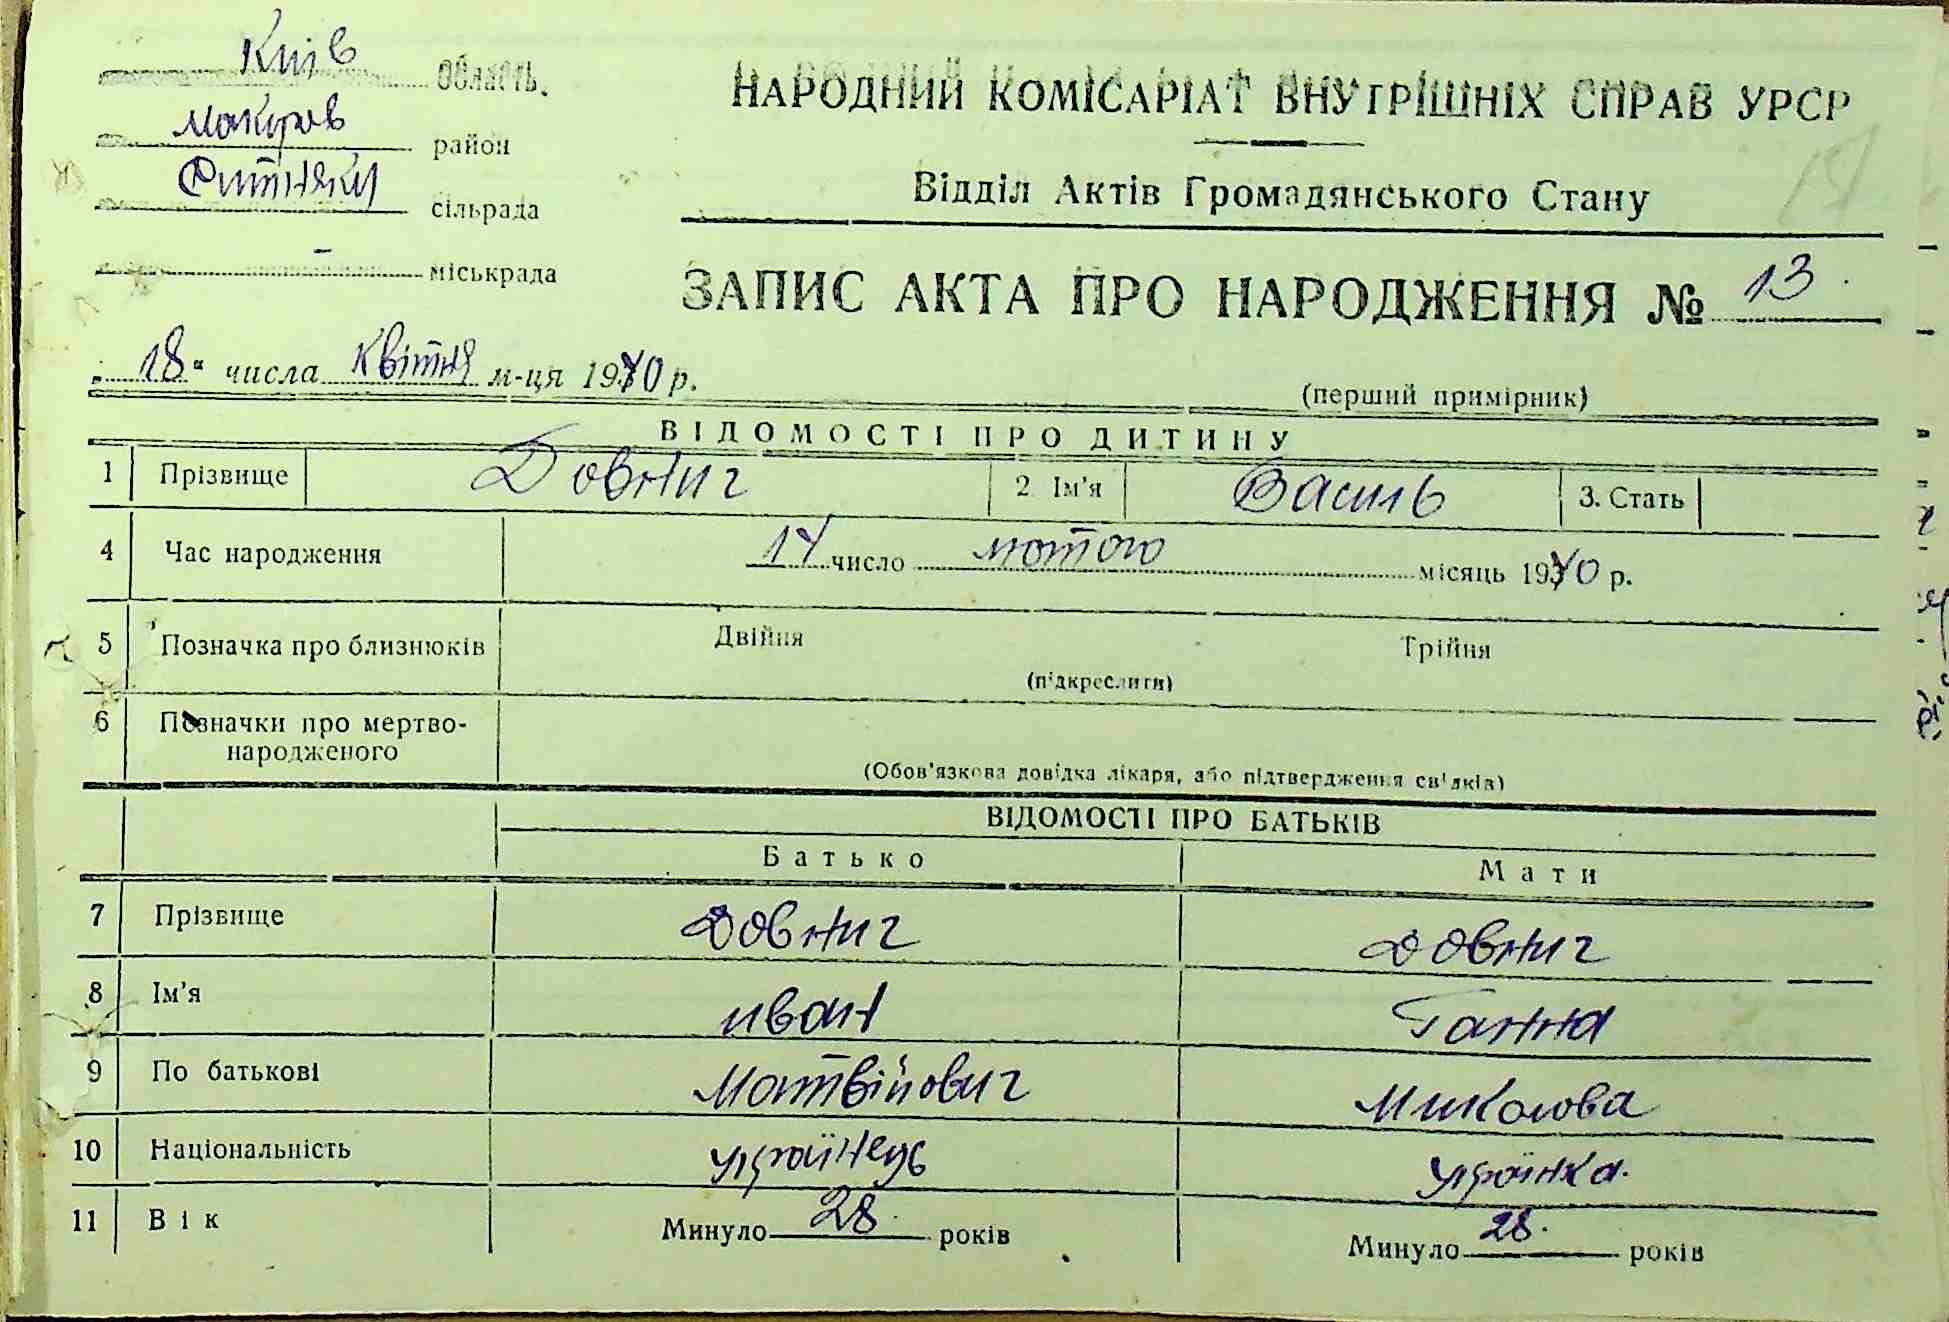 Київ область.
Макарів район
Фитняки сільрада
- міськрада
НАРОДНИЙ КОМІСАРІАТ ВНУТРІШНІХ СПРАВ УРСР
Відділ Актів Громадянського Стану
ЗАПИС АКТА ПРО НАРОДЖЕННЯ № 13
„18“ числа квітня м-ця 1940 р.
(перший примірник)
ВІДОМОСТІ ПРО ДИТИНУ
1 Прізвище Довнич 2. Ім'я Василь 3. Стать
4 Час народження 14 число лютого місяць 1940 р.
5 Позначка про близнюків Двійня Трійня
(підкреслити)
6 Позначки про мертво-
народженого
(Обов'язкова довідка лікаря, або підтвердження свідків)
ВІДОМОСТІ ПРО БАТЬКІВ
Батько Мати
7 Прізвище Довнич Довнич
8 Ім'я иван Ганна
9 По батькові Матвійович Миколова
10 Національність українець українка.
11 Вік Минуло 28 років Минуло 28 років